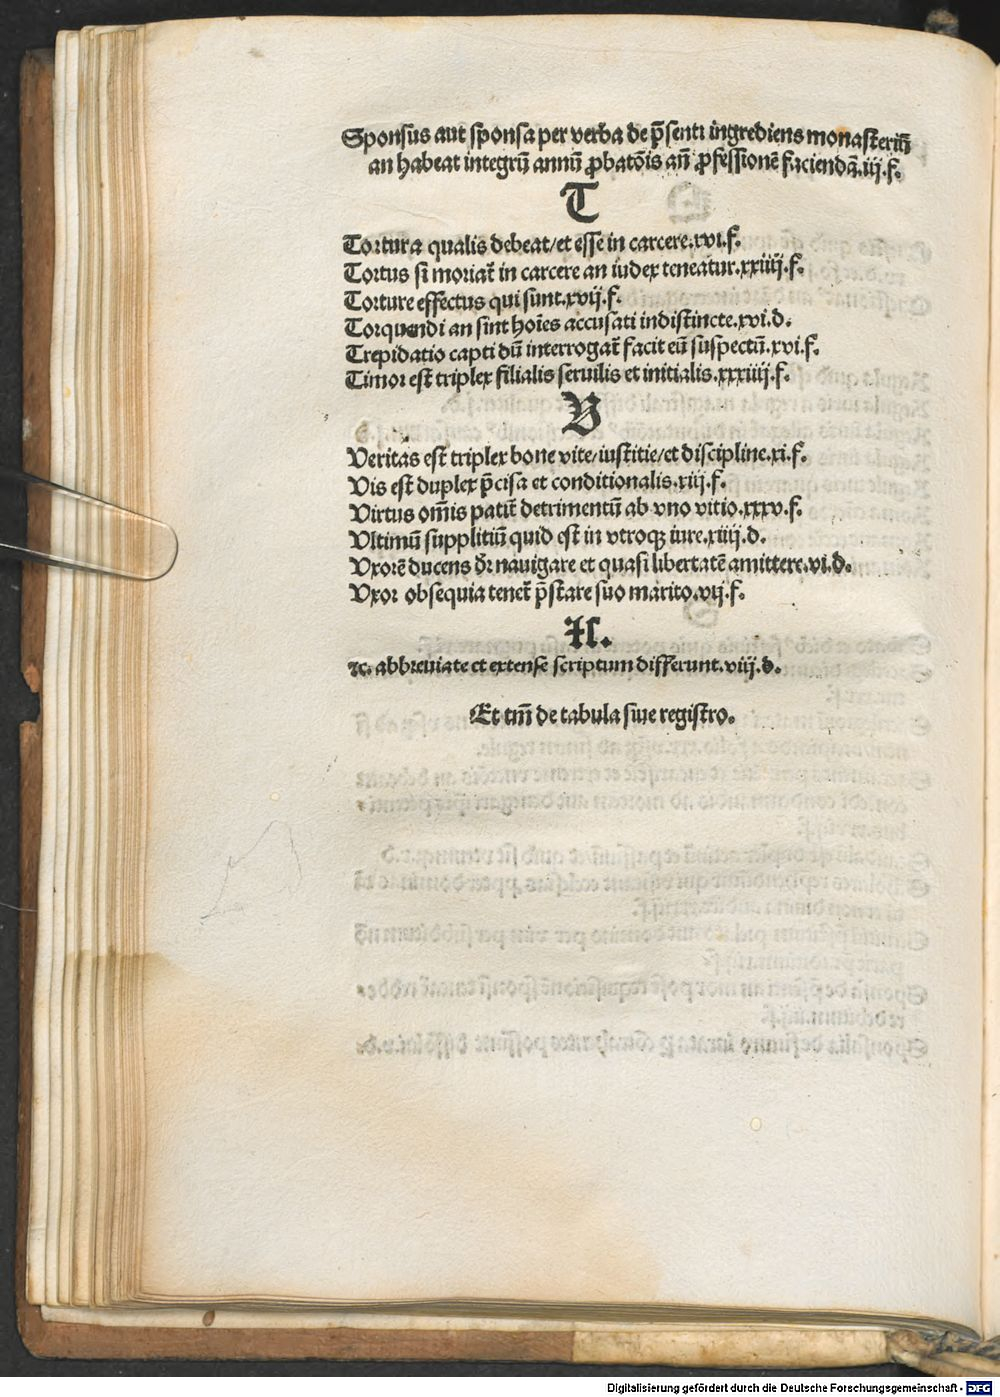 Sponsus aut sponsa per verba de p̄senti ingrediens monasteriū
an habeat integrū annū ꝓbatōis añ ꝓfessionē faciendā.iij.f.
T
Tortura qualis debeat/et esse in carcere.xvi.f.
Tortus si moriaṫ in carcere an iudex teneatur.xxiiij.f.
Torture effectus qui sunt.xvij.f.
Torquendi an sint hoīes accusati indistincte.xvi.d.
Trepidatio capti dū interrogaṫ facit eū suspectū.xvi.f.
Timor est triplex filialis seruilis et initialis.xxxiiij.f.
V
Veritas est triplex bone vite/iustitie/et discipline.xi.f.
Vis est duplex p̄cisa et conditionalis.xiij.f.
Virtus om̄is patiṫ detrimentū ab vno vitio.xxxv.f.
Vltimū supplitiū quid est in vtroqꝫ iure.xiiij.d.
Vxorē ducens dr̄ nauigare et quasi libertatē amittere.vi.d.
Vxor obsequia teneṫ p̄stare suo marito.vij.f.
⁊c.
⁊c. abbreuiate et extense scriptum differunt.viij.d.
Et tm̄ de tabula siue registro.
Digitalisierung gefördert durch die Deutsche Forschungsgemeinschaft - DFG